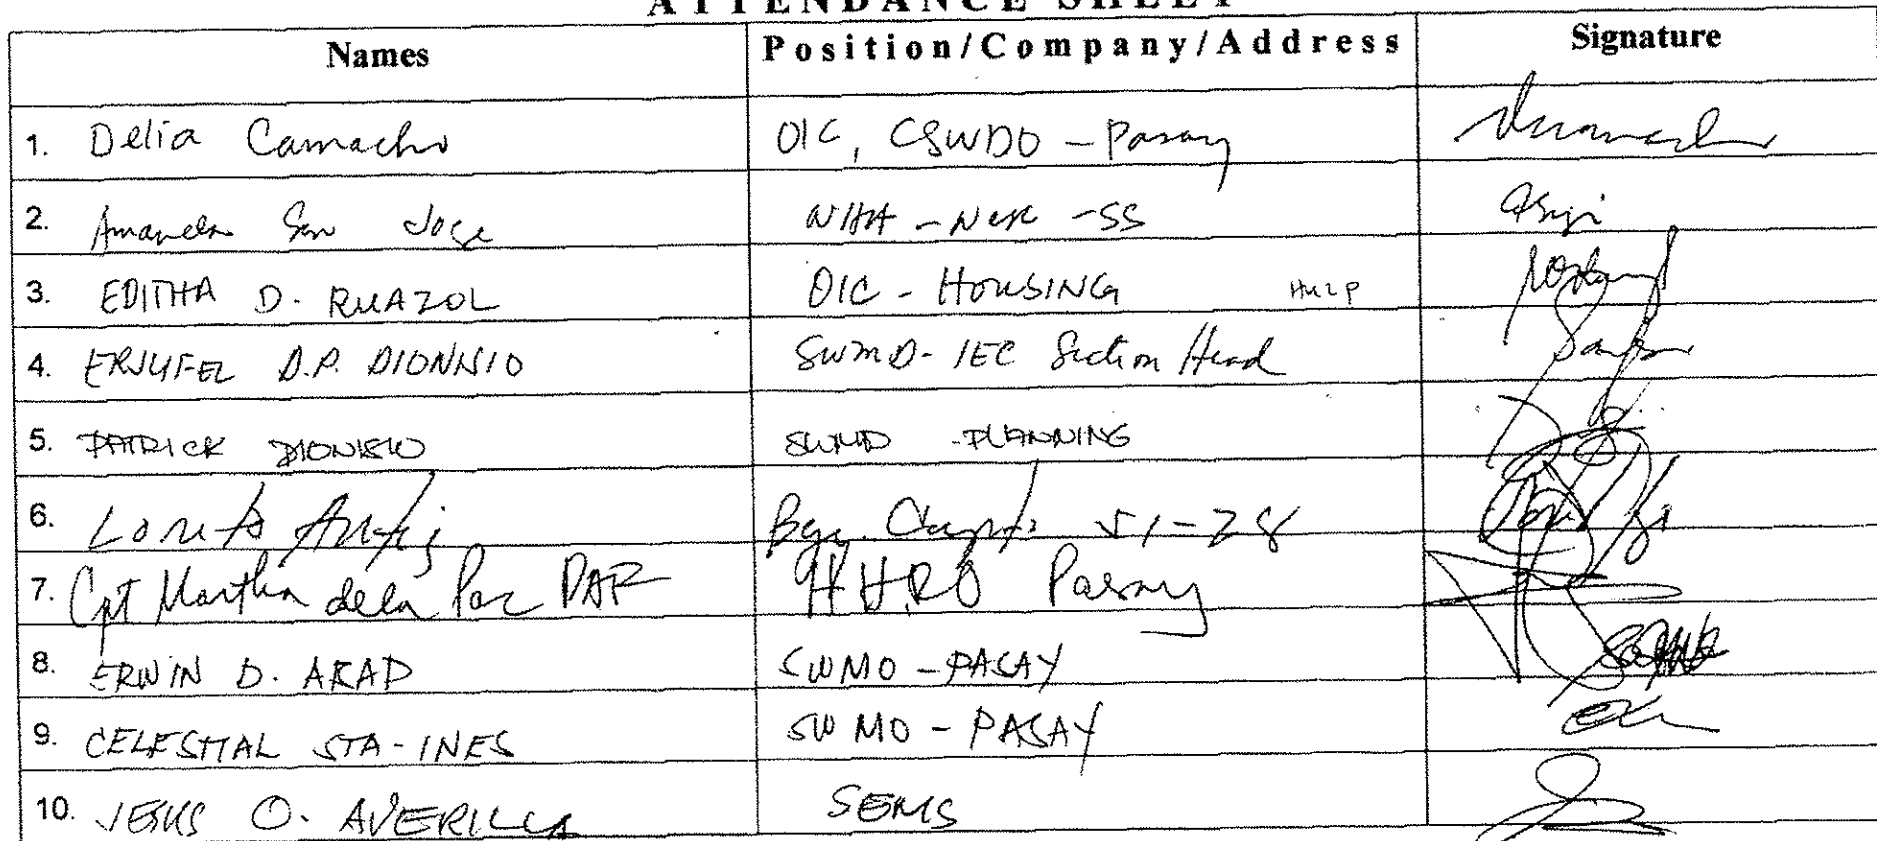 ATTENDANCE SHEET
Names Position/Company/Address Signature
1. Delia Camacho OIC, CSWDO - Pasay
2. Amanda San Jose NHA - - SS
3. EDITHA D. RUAZOL OIC - HOUSING
4. ERJUFEL D.P. DIONISIO SWMD - IEC Section Head
5. PATRICK DIONISIO SWMD - PLANNING
6. Loreto
7. Cpt Martha dela Paz PAF HHRO Pasay
8. ERWIN D. ABAD SWMO - PASAY
9. CELESTIAL STA-INES SWMO - PASAY
10. JESUS O. AVERILLA SEMS